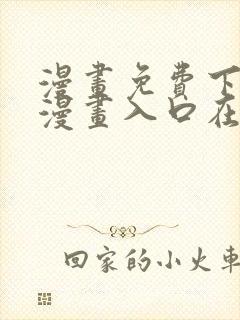 漫畫免費下
漫畫入口在
回家的小火車